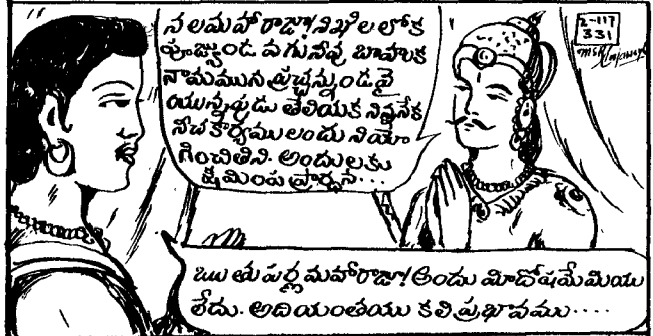 నలమహారాజా! నిఖిల లోక
పూజ్యుండ వగునీవు బాహుక
నామమున ప్రచ్ఛన్నుండవై
యున్నప్పుడు తెలియక నిన్ననేక
నీచకార్యములందు నియో
గించితిని. అందులకు
క్షమింప ప్రార్థన...
2-117
331
ఋతుపర్ణమహారాజా! అందు మీదోషమేమియు
లేదు. అదియంతయు కలి ప్రభావము....